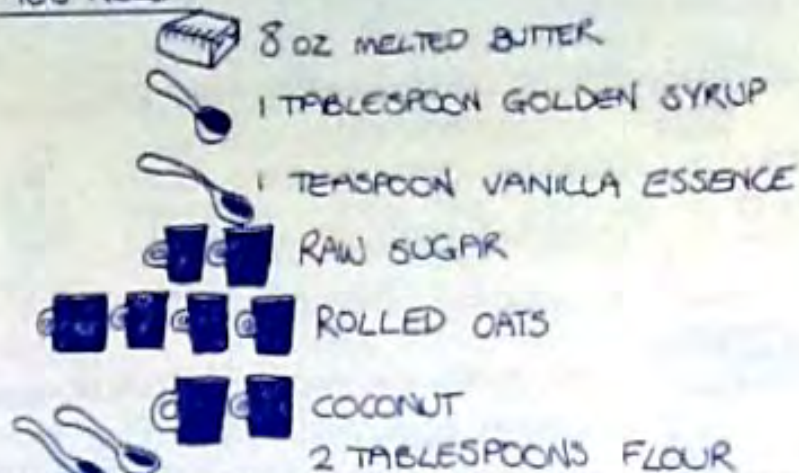 8 OZ MELTED BUTTER
1 TABLESPOON GOLDEN SYRUP
1 TEASPOON VANILLA ESSENCE
RAW SUGAR
ROLLED OATS
COCONUT
2 TABLESPOONS FLOUR